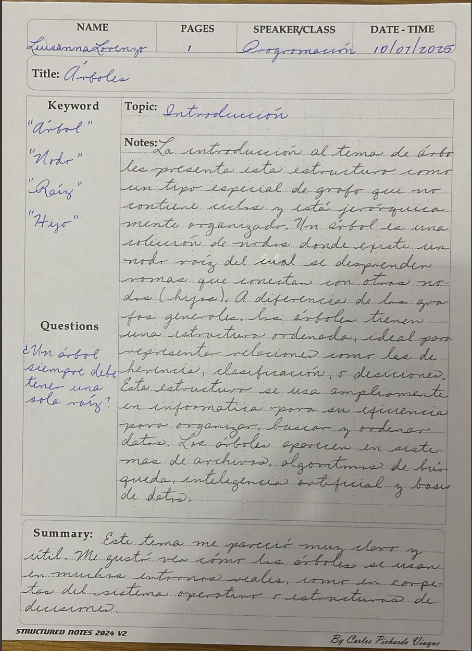 NAME
PAGES
SPEAKER/CLASS
DATE - TIME
Luisanna Lorenzo
1
Programación
10/07/2025
Title: Árboles
Keyword
"Árbol"
"Nodo"
"Raíz"
"Hijo"
Questions
¿Un árbol
siempre debe
tener una
sola raíz?
Topic: Introducción
Notes: La introducción al tema de árbo
les presenta esta estructura como
un tipo especial de grafo que no
contiene ciclos y está jerárquica
mente organizado. Un árbol es una
colección de nodos donde existe un
nodo raíz del cual se desprenden
ramas que conectan con otros no-
dos (hijos). A diferencia de los gra
fos generales, los árboles tienen
una estructura ordenada, ideal para
representar relaciones como las de
herencia, clasificación, o decisiones.
Esta estructura se usa ampliamente
en informática para su eficiencia
para organizar, buscar y ordenar
datos. Los árboles aparecen en siste
mas de archivos, algoritmos de bús-
queda, inteligencia artificial y bases
de datos.
Summary: Este tema me pareció muy claro y
útil. Me gustó ver cómo los árboles se usan
en muchos entornos reales, como en carpe-
tas del sistema operativo o estructuras de
decisiones.
STRUCTURED NOTES 2024 V2
By Carlos Pichardo Vinque